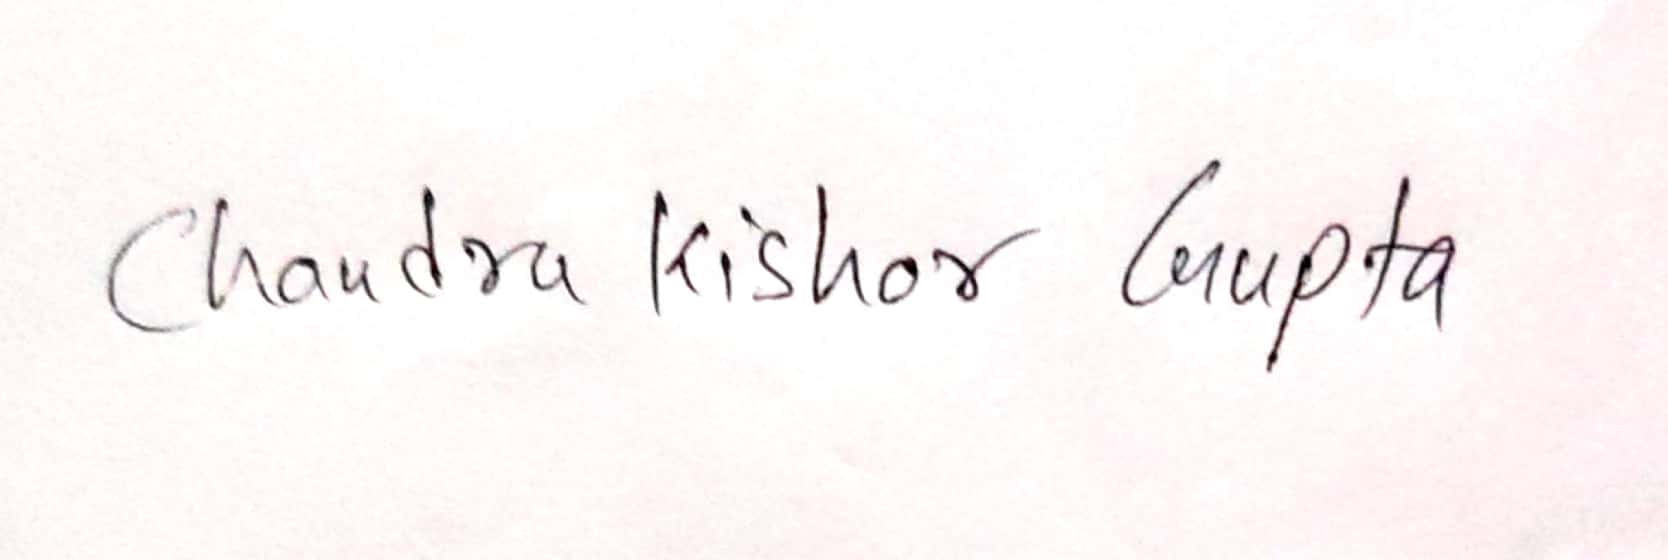 Chandra Kishor Gupta